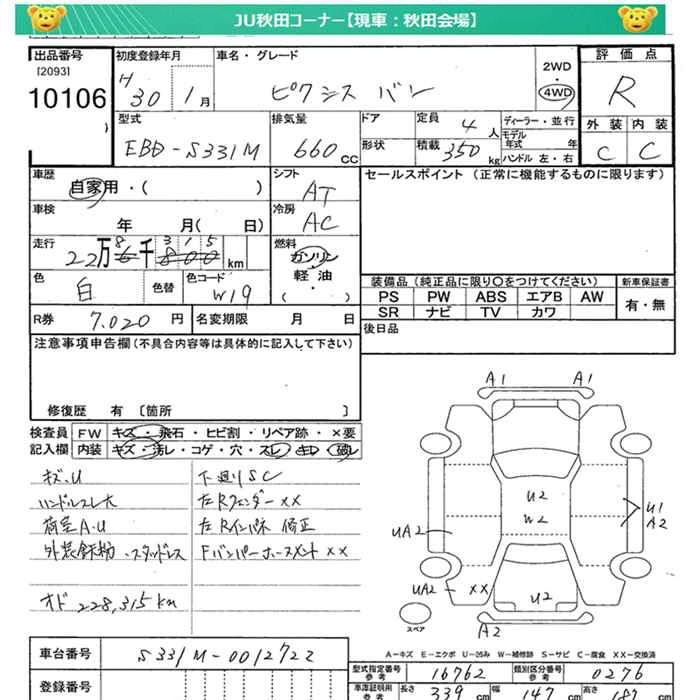 JU秋田コーナー【現車：秋田会場】
出品番号
[2093]
10106
初度登録年月
H 30 1月
車名・グレード
ピクシス バン
2WD
4WD
評価点
R
外装 内装
C C
型式
EBD-S331M
排気量
660 CC
ドア
形状
定員 4人
積載 350kg
ディーラー・並行
モデル年式 年
ハンドル 左・右
車歴
自家用・( )
シフト
AT
車検
年 月( 日)
冷房
AC
走行
22万 8 千 3 1 5 km
燃料
ガソリン
軽油
( )
色
白
色替
色コード
W19
R券 7.020 円
名変期限 月 日
セールスポイント（正常に機能するものに限ります）
装備品（純正品に限り〇をつけてください）
新車保証書
PS PW ABS エアB AW
SR ナビ TV カワ
有・無
後日品
注意事項申告欄（不具合内容等は具体的に記入して下さい）
修復歴 有 〔箇所 〕
検査員 FW キズ・飛石・ヒビ割・リペア跡・×要
記入欄 内装 キズ・汚レ・コゲ・穴・スレ・キレ・破レ
キズ.U
ハンドルスレ大
荷室A.U
外装鉄粉 .スタッドレス
オド 228,315km
下廻りSC
左Rフェンダー××
左Rインパネ 修正
Fバンパーホースメント××
A1 A1
U2
W2
U1
A2
UA2
UA2 ××
U2
A2
スペア
A－キズ E－エクボ U－凹み W－補修跡 S－サビ C－腐食 XX－交換済
車台番号
S331M-0012722
登録番号
型式指定番号
参考
16762
類別区分番号
参考
0276
車庫証明用
参考
長さ 339 cm
幅 147 cm
高さ 187 cm